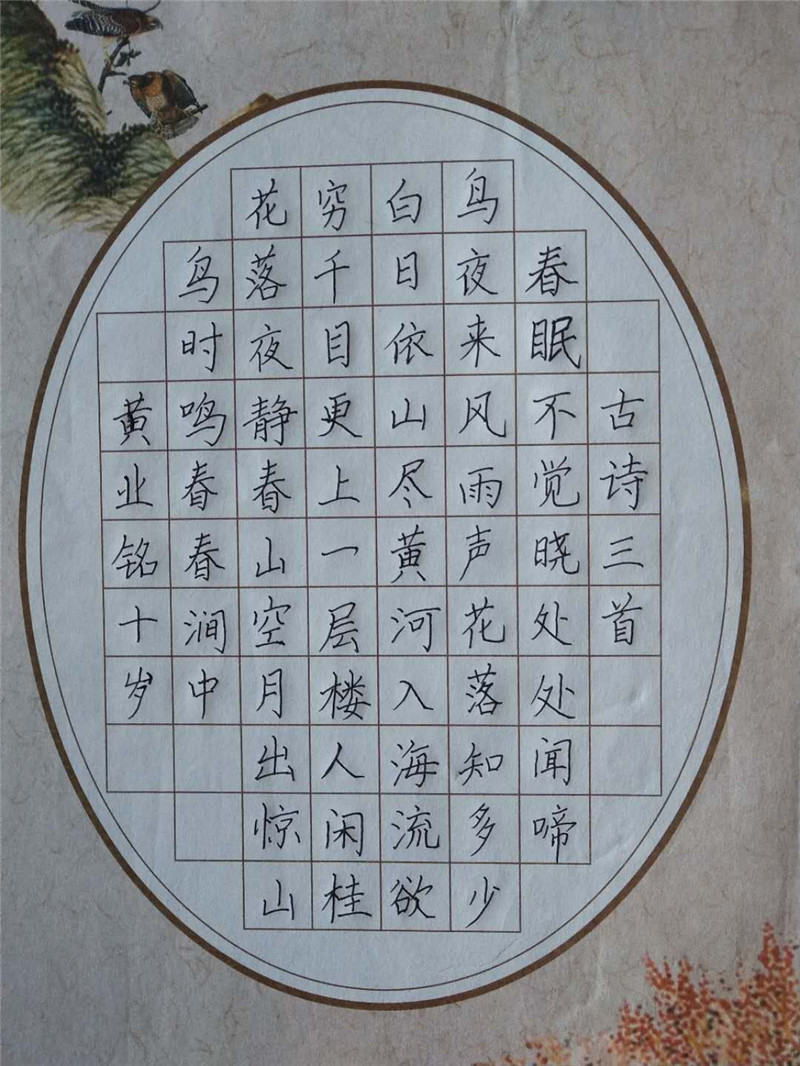 古诗三首
春眠不觉晓处处闻啼
鸟夜来风雨声花落知多少
白日依山尽黄河入海流欲
穷千目更上一层楼人闲桂
花落夜静春山空月出惊山
鸟时鸣春春涧中
黄业铭十岁